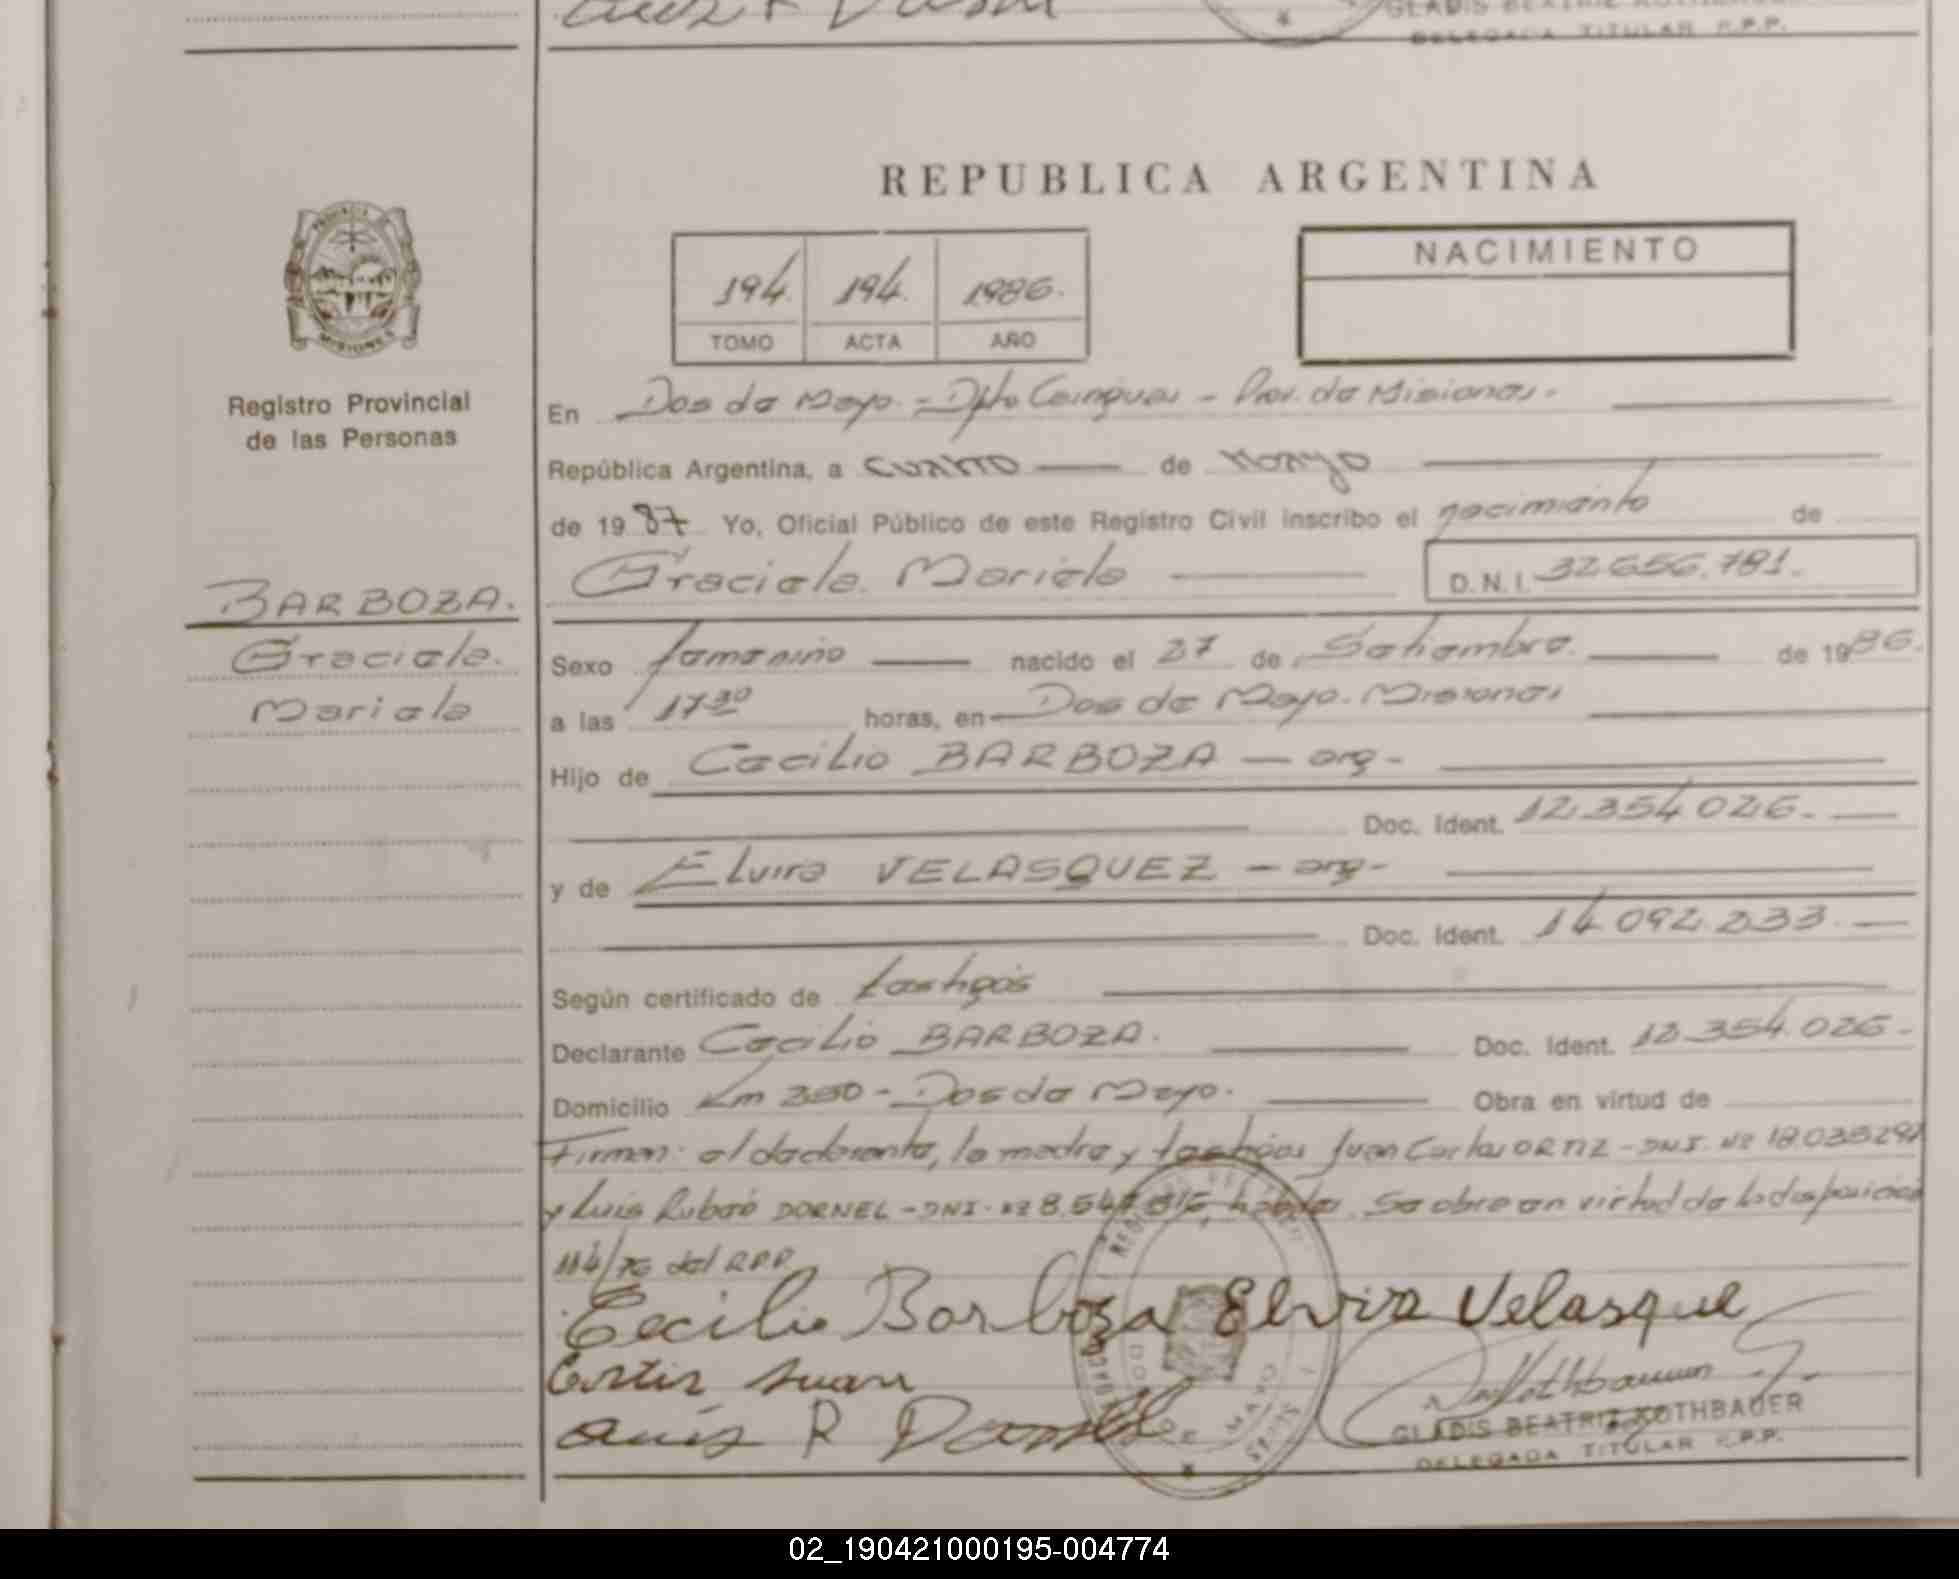 GLADIS BEATRIZ
DELEGADA TITULAR R.P.P.
REPUBLICA ARGENTINA
PROVINCIA DE MISIONES
Registro Provincial
de las Personas
194. 194. 1986.
TOMO ACTA AÑO
NACIMIENTO
En Dos de Mayo - Dpto Cainguas - Prov. de Misiones.
República Argentina, a cuatro de mayo
de 1987 Yo, Oficial Público de este Registro Civil inscribo el nacimiento de
Graciela Mariela D.N.I. 32.656.781.
BARBOZA.
Graciela.
Mariela
Sexo femenino nacido el 27 de Setiembre. de 1986.
a las 17 30 horas, en Dos de Mayo. Misiones
Hijo de Cecilio BARBOZA - arg-
Doc. Ident. 12.354.026.
y de Elvira VELASQUEZ - arg-
Doc. Ident. 14.092.233.
Según certificado de testigos
Declarante Cecilio BARBOZA. Doc. Ident. 12.354.026.
Domicilio Km 250 - Dos de Mayo. Obra en virtud de
Firman: el declarante, la madre y testigos Juan Carlos ORTIZ - DNI. Nº
y Luis Ruben DORNEL - DNI. Nº hábiles. Se obra en virtud de la disposición
114/76 del RPP
Cecilio Barboza Elvira Velasque
Ortiz Juan
Luis R Dornel
GLADIS BEATRIZ ROTHBAUER
DELEGADA TITULAR R.P.P.
02_190421000195-004774